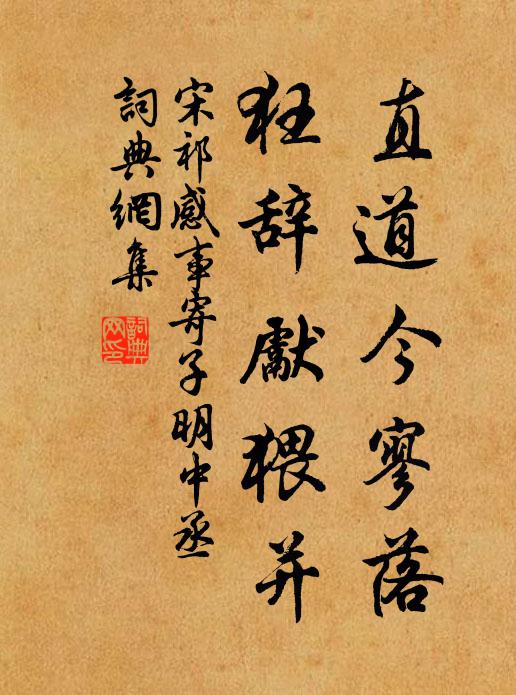 直道今寥落
狂辞獻猥并
宋祁感事寄子明中丞
詞典網集
詞典网印